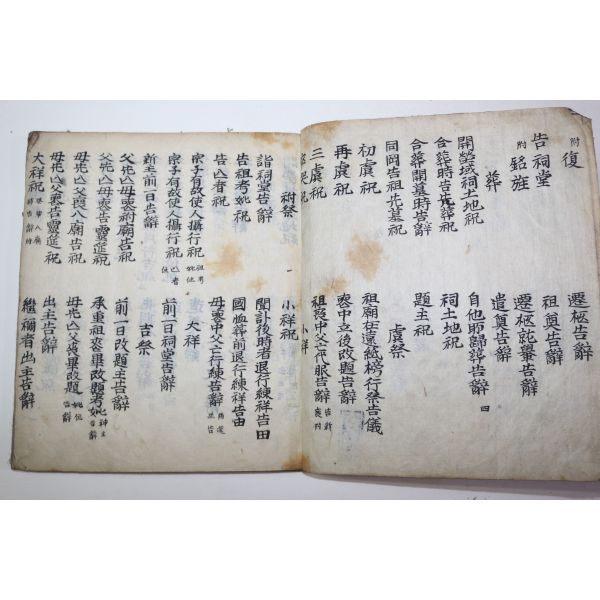 附 復
告祠堂
附 銘旌
葬
開塋域祠土地祝
合葬時告先葬祝
合葬開墓時告辭
同岡告祖先墓祝
初虞祝
再虞祝
三虞祝
遷柩告辭
祖奠告辭
遷柩就轝告辭
遣奠告辭
自他所歸葬告辭 四
祠土地祝
題主祝
虞祭
祖廟在遠紙榜行祭告儀
喪中立後改題告辭
祖喪中父亡代服告辭
小祥
祔祭
詣祠堂告辭
告祖考妣祝
告亡者祝
宗子有故使人攝行祝 祖考妣位
宗子有故使人攝行祝 亡者位
新主前一日告辭
父先亡母喪祔廟告祝
母先亡父喪告靈筵祝
母先亡父喪入廟告祝
母先亡父喪告靈筵祝
大祥祝
小祥祝
聞訃後時者退行練祥告由
國恤葬前退行練祥告由
母喪中父亡行練告辭
大祥
前一日祠堂告辭
吉祭
前一日改題主告辭
承重祖喪畢改題考妣神主告辭
母先亡父喪畢改題妣位告辭
出主告辭
繼禰者出主告辭